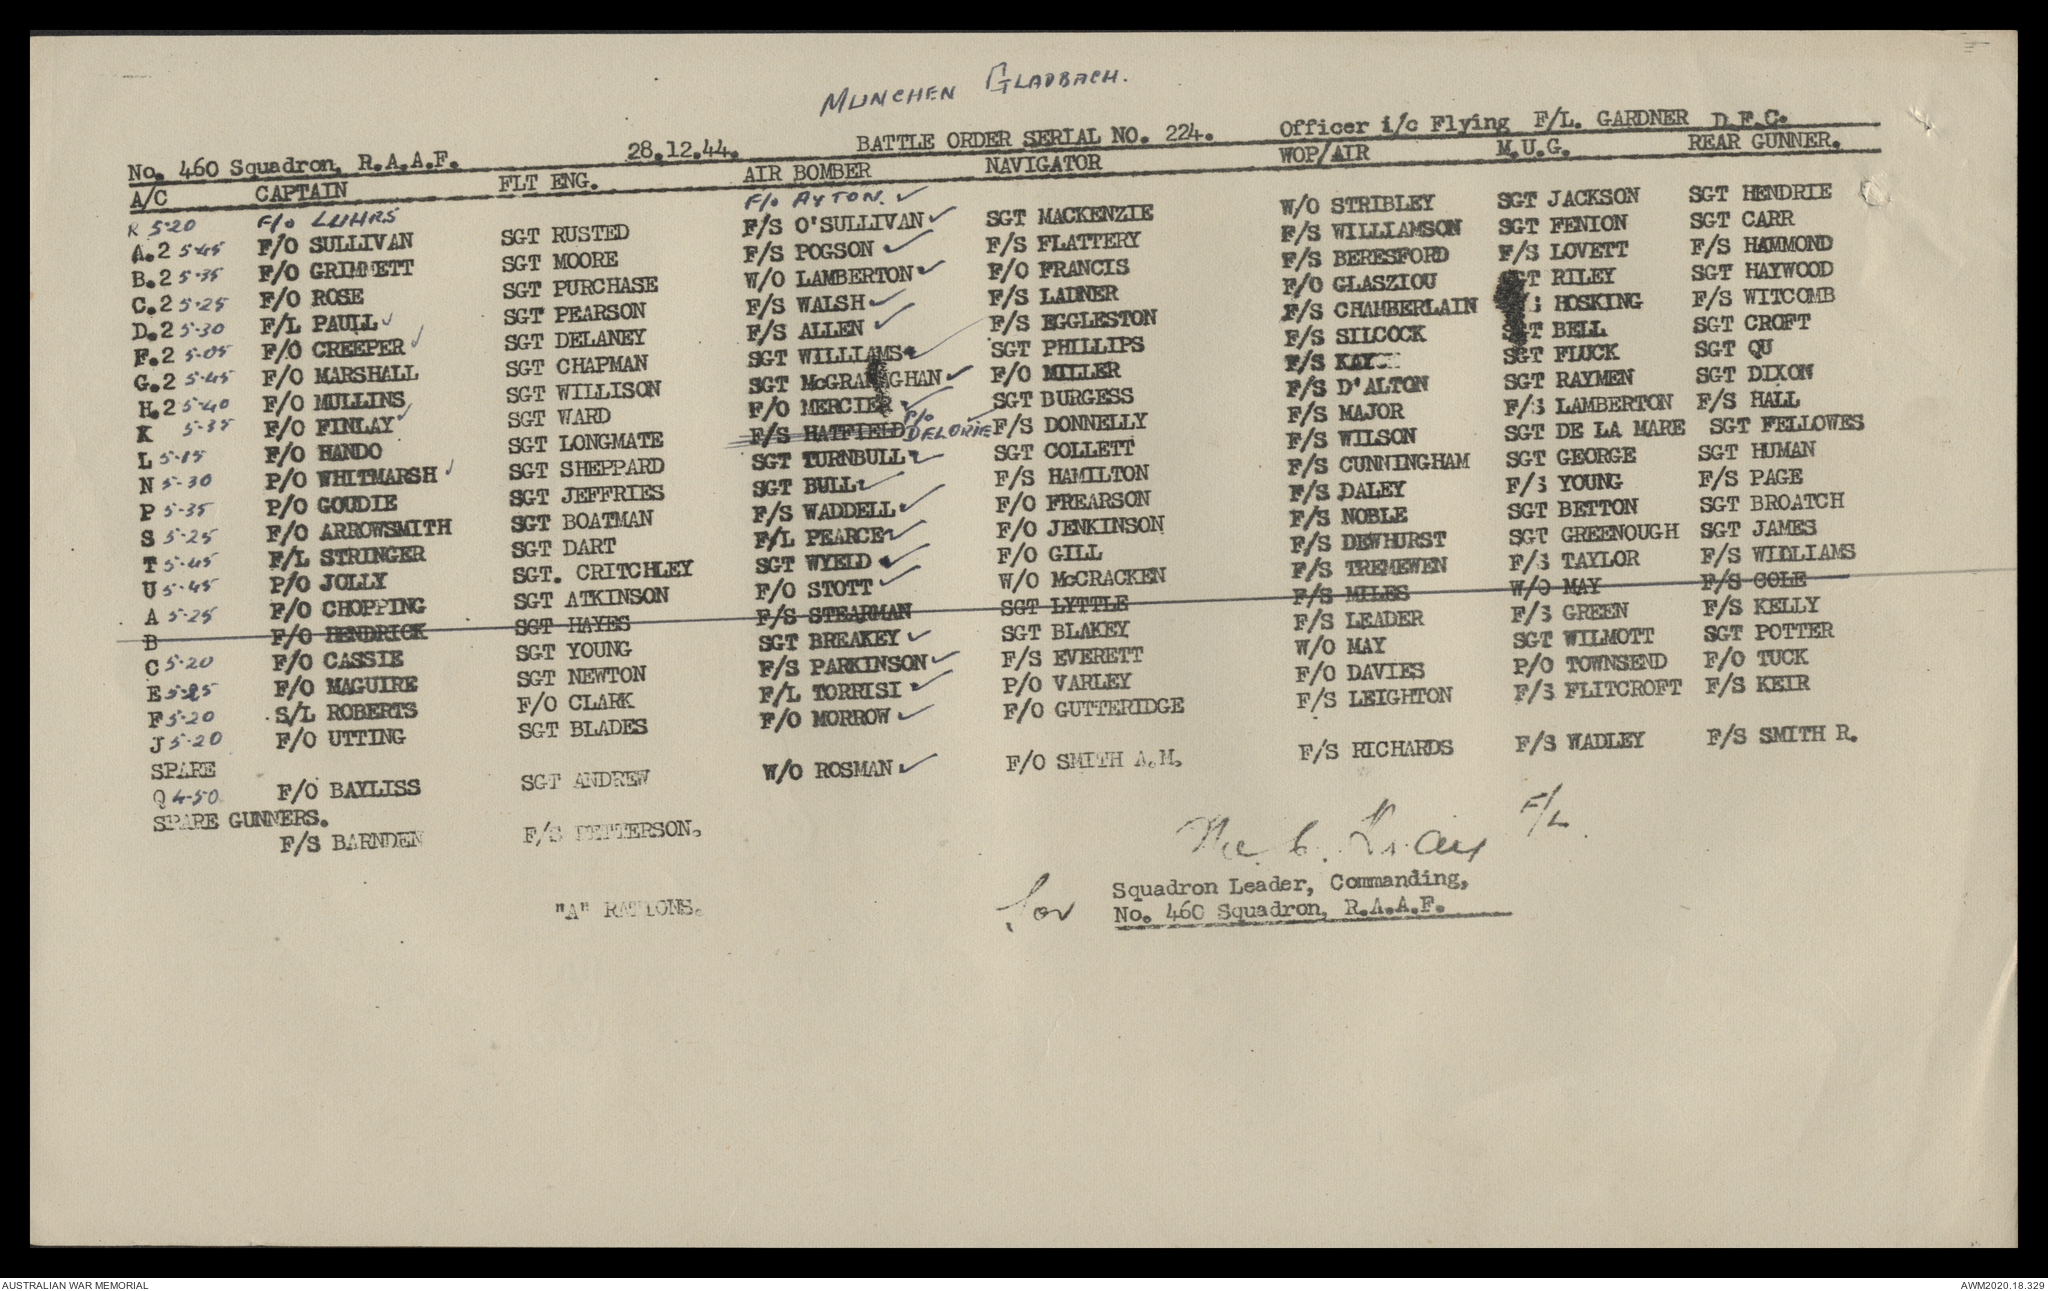 MUNCHEN GLADBACH.
No. 460 Squadron, R.A.A.F. 28.12.44. BATTLE ORDER SERIAL NO. 224. Officer i/c Flying F/L. GARDNER D.F.C.
A/C CAPTAIN FLT ENG. AIR BOMBER NAVIGATOR WOP/AIR M.U.G. REAR GUNNER.
R 5-20 F/O LUHRS F/O AYTON.
A.2 5-45 F/O SULLIVAN SGT RUSTED F/S O'SULLIVAN SGT MACKENZIE W/O STRIBLEY SGT JACKSON SGT HENDRIE
B.2 5-35 F/O GRIMMETT SGT MOORE F/S POGSON F/S FLATTERY F/S WILLIAMSON SGT FENION SGT CARR
C.2 5-25 F/O ROSE SGT PURCHASE W/O LAMBERTON F/O FRANCIS F/S BERESFORD F/S LOVETT F/S HAMMOND
D.2 5-30 F/L PAULL SGT PEARSON F/S WALSH F/S LADNER F/O GLASZIOU SGT RILEY SGT HAYWOOD
F.2 5-05 F/O CREEPER SGT DELANEY F/S ALLEN F/S EGGLESTON F/S CHAMBERLAIN HOSKING F/S WITCOMB
G.2 5-45 F/O MARSHALL SGT CHAPMAN SGT WILLIAMS SGT PHILLIPS F/S SILCOCK SGT BELL SGT CROFT
H.2 5-40 F/O MULLINS SGT WILLISON SGT McGRANAGHAN F/O MILLER F/S KAY SGT FLUCK SGT QU
K 5-35 F/O FINLAY SGT WARD F/O MERCIER SGT BURGESS F/S D'ALTON SGT RAYMEN SGT DIXON
L 5-15 F/O HANDO SGT LONGMATE F/S HATFIELD P/O DELORIE F/S DONNELLY F/S MAJOR F/S LAMBERTON F/S HALL
N 5-30 P/O WHITMARSH SGT SHEPPARD SGT TURNBULL SGT COLLETT F/S WILSON SGT DE LA MARE SGT FELLOWES
P 5-35 P/O GOUDIE SGT JEFFRIES SGT BULL F/S HAMILTON F/S CUNNINGHAM SGT GEORGE SGT HUMAN
S 5-25 F/O ARROWSMITH SGT BOATMAN F/S WADDELL F/O FREARSON F/S DALEY F/S YOUNG F/S PAGE
T 5-45 F/L STRINGER SGT DART F/L PEARCE F/O JENKINSON F/S NOBLE SGT BETTON SGT BROATCH
U 5-45 P/O JOLLY SGT. CRITCHLEY SGT WYELD F/O GILL F/S DEWHURST SGT GREENOUGH SGT JAMES
A 5-25 F/O CHOPPING SGT ATKINSON F/O STOTT W/O McCRACKEN F/S TREMEWEN F/S TAYLOR F/S WILLIAMS
B F/O HENDRICK SGT HAYES F/S STEARMAN SGT LYTTLE F/S MILES W/O MAY F/S COLE
C 5-20 F/O CASSIE SGT YOUNG SGT BREAKEY SGT BLAKEY F/S LEADER F/S GREEN F/S KELLY
E 5-25 F/O MAGUIRE SGT NEWTON F/S PARKINSON F/S EVERETT W/O MAY SGT WILMOTT SGT POTTER
F 5-20 S/L ROBERTS F/O CLARK F/L TORRISI P/O VARLEY F/O DAVIES P/O TOWNSEND F/O TUCK
J 5-20 F/O UTTING SGT BLADES F/O MORROW F/O GUTTERIDGE F/S LEIGHTON F/S FLITCROFT F/S KEIR
SPARE
Q 4-50 F/O BAYLISS SGT ANDREW W/O ROSMAN F/O SMITH A.M. F/S RICHARDS F/S WADLEY F/S SMITH R.
SPARE GUNNERS.
F/S BARNDEN F/S PETTERSON.
F/L
"A" RATIONS.
for Squadron Leader, Commanding,
No. 460 Squadron, R.A.A.F.
AUSTRALIAN WAR MEMORIAL AWM2020.18.329